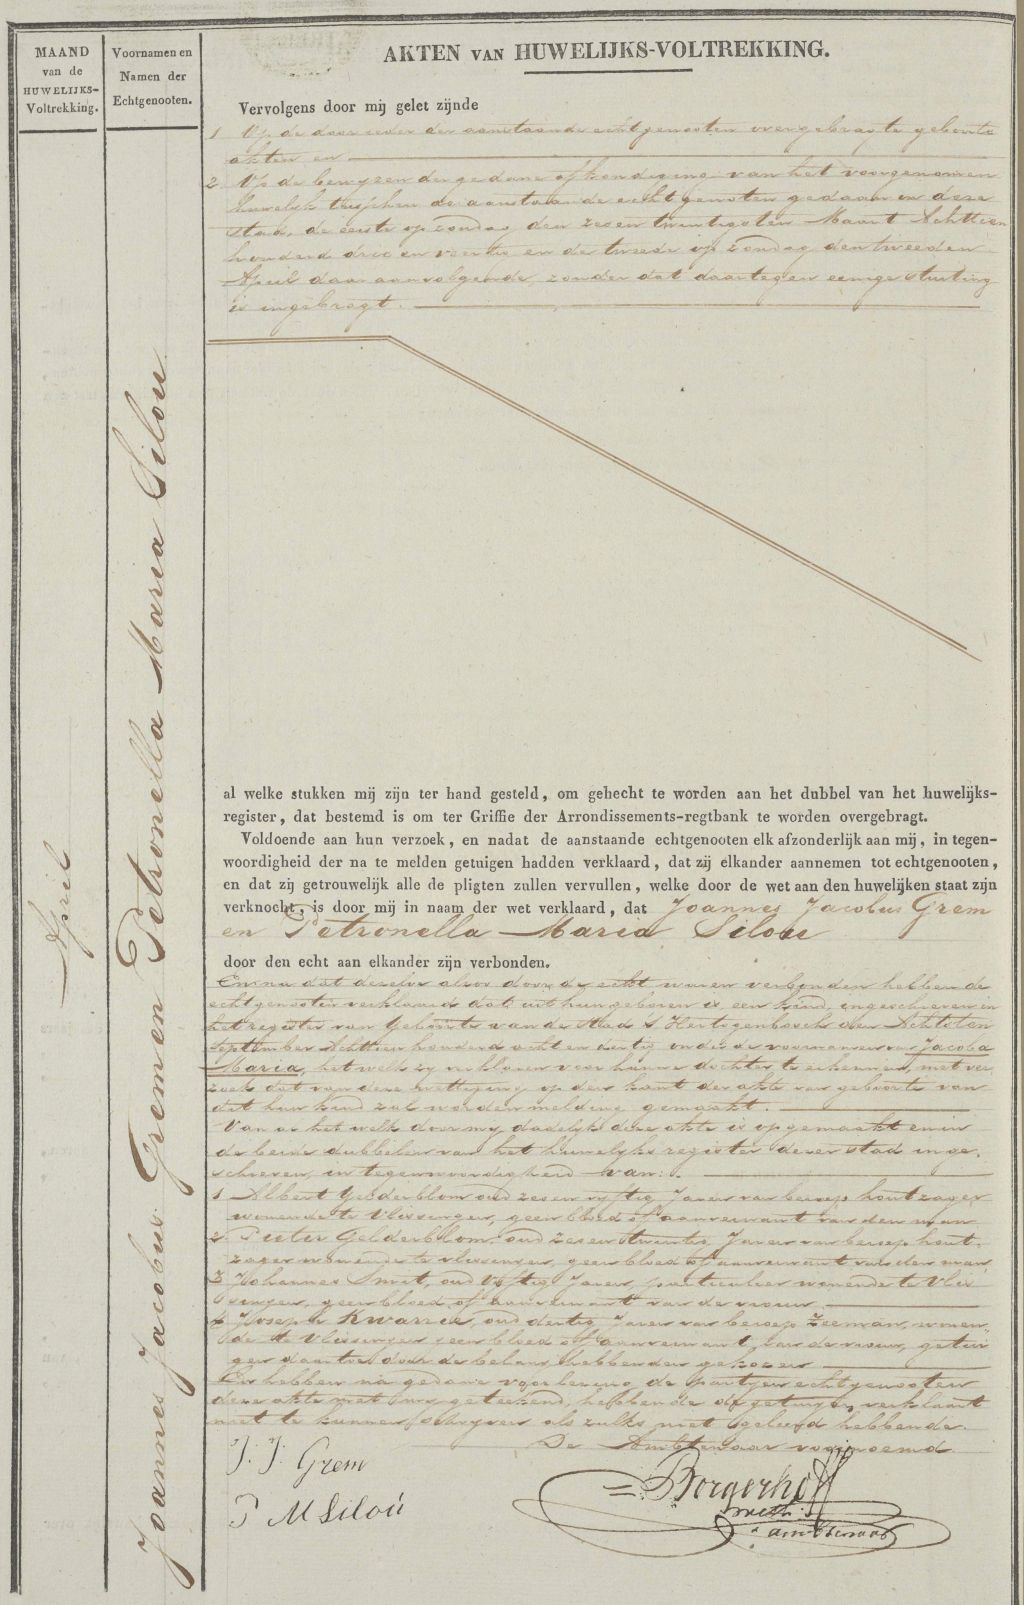 MAAND
van de
HUWELIJKS-
Voltrekking.
Voornamen en
Namen der
Echtgenooten.
AKTEN VAN HUWELIJKS-VOLTREKKING.
April
Joannes Jacobus Grem en Petronella Maria Silou
Vervolgens door mij gelet zijnde
1 Op de door ieder der aanstaande echtgenooten overgebragte geboorte
akten en
2 Op de bewyzen der gedane afkondiging van het voorgenomen
huwelijk tusschen de aanstaande echtgenoten gedaan in deze
stad, de eerste op zondag den zesen twintigsten Maart Achttien
honderd drie en veertig en de tweede op zondag den tweeden
April daar aanvolgende, zonder dat daartegen eenige stuiting
is ingebragt.
al welke stukken mij zijn ter hand gesteld, om gehecht te worden aan het dubbel van het huwelijks-
register, dat bestemd is om ter Griffie der Arrondissements-regtbank te worden overgebragt.
Voldoende aan hun verzoek, en nadat de aanstaande echtgenooten elk afzonderlijk aan mij, in tegen-
woordigheid der na te melden getuigen hadden verklaard, dat zij elkander aannemen tot echtgenooten,
en dat zij getrouwelijk alle de pligten zullen vervullen, welke door de wet aan den huwelijken staat zijn
verknocht, is door mij in naam der wet verklaard, dat Joannes Jacobus Grem
en Petronella Maria Silou
door den echt aan elkander zijn verbonden.
En na dat dezelve alzoo door de echt waren verbonden hebben de
echtgenooten verklaard dat uit hun geboren is een kind, ingeschreven in
het register van Geboorte van de stad 's Hertogenbosch den Achtsten
September Achttien honderd acht en dertig onder de voornamen van Jacoba
Maria, het welk zy verklaren voor hunne dochter te erkennen, met ver
zoek dat van deze wettiging op den kant der akte van geboorte van
dit hun kind zal worden melding gemaakt.
Van al het welk door my dadelyk deze akte is opgemaakt en in
de beide dubbelen van het huwelyks register dezer stad inge-
schreven, in tegenwoordigheid van:
1 Albert Gelderblom oud zesen vyftig Jaren van beroep houtzager
wonende te Vlissingen, geen bloed of aanverwant van den man
2 Pieter Gelderblom, oud zesen twintig Jaren van beroep hout-
zager wonende te vlissingen, geen bloed of aanverwant van den man
3 Johannes Smit, oud vyftig Jaren, particulier wonende te Vlis
singen, geen bloed of aanverwant van de vrouw
4 Joseph Kwarrie, oud dertig Jaren van beroep Zeeman, wonen-
de te Vlissingen geen bloed of aanverwant van de vrouw, getui
gen daartoe door de belang hebbenden gekozen
En hebben na gedane voorlezing de partyen echtgenooten
deze akte met my geteekend, hebbende de getuigen verklaard
niet te kunnen schryven als zulks niet geleerd hebbende.
De Ambtenaar voornoemd
J. J. Grem
Borgerhoff
P M Silou
weth:
ambtenaar